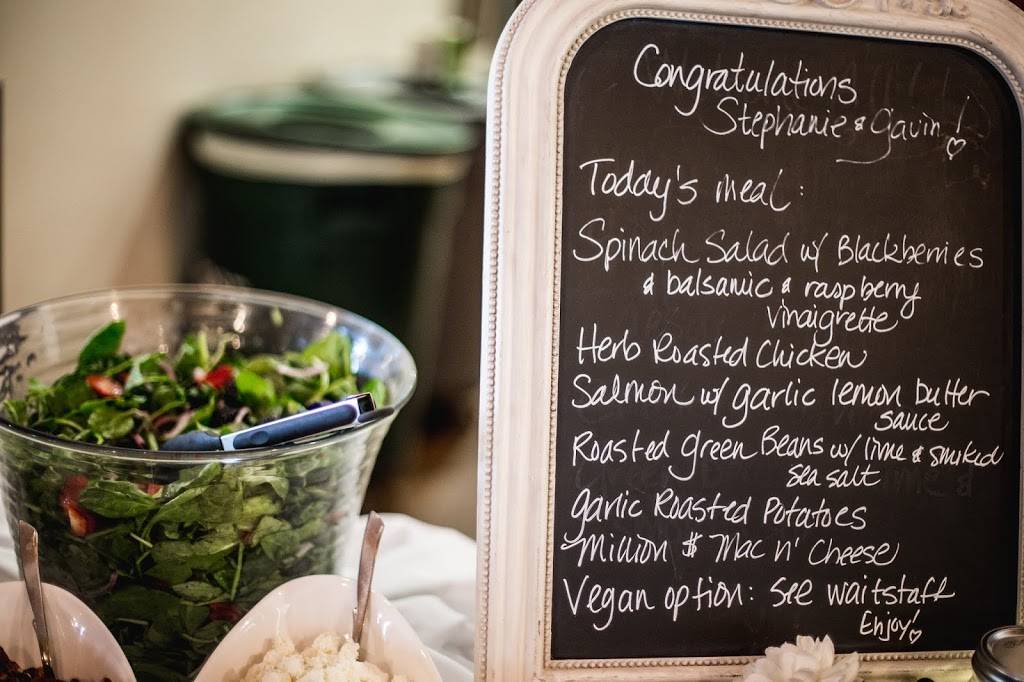 Congratulations
Stephanie & Gavin!
Today's meal:
Spinach Salad w/ Blackberries
& balsamic & raspberry
vinaigrette
Herb Roasted Chicken
Salmon w/ garlic lemon butter
sauce
Roasted Green Beans w/ lime & smoked
sea salt
garlic Roasted Potatoes
Million $ Mac n' Cheese
Vegan option: see waitstaff
Enjoy!